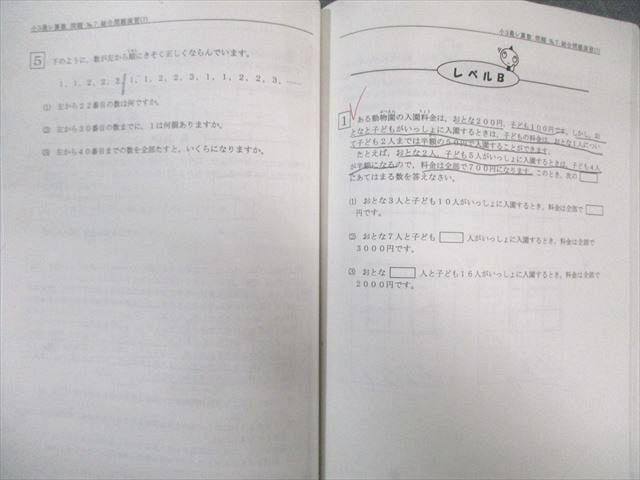 小3最レ算数 問題 №7 総合問題演習(1)
5 下のように、数が左から順にきそく正しくならんでいます。
1, 1, 2, 2, 3, 1, 1, 2, 2, 3, 1, 1, 2, 2, 3, ……
(1) 左から22番目の数は何ですか。
(2) 左から30番目の数までに、1は何個ありますか。
(3) 左から40番目までの数を全部たすと、いくらになりますか。
小3最レ算数 問題 №7 総合問題演習(1)
レベルB
1 ある動物園の入園料金は、おとな200円、子ども100円です。しかし、お
となと子どもがいっしょに入園するときは、子どもの料金は、おとな1人につい
て子ども2人までは半額の50円で入園することができます。
たとえば、おとな2人、子ども5人がいっしょに入園するときは、子ども4人
が半額になるので、料金は全部で700円になります。このとき、次の□
にあてはまる数を答えなさい。
(1) おとな3人と子ども10人がいっしょに入園するとき、料金は全部で□
円です。
(2) おとな7人と子ども□人がいっしょに入園するとき、料金は全部で
3000円です。
(3) おとな□人と子ども16人がいっしょに入園するとき、料金は全部で
2000円です。